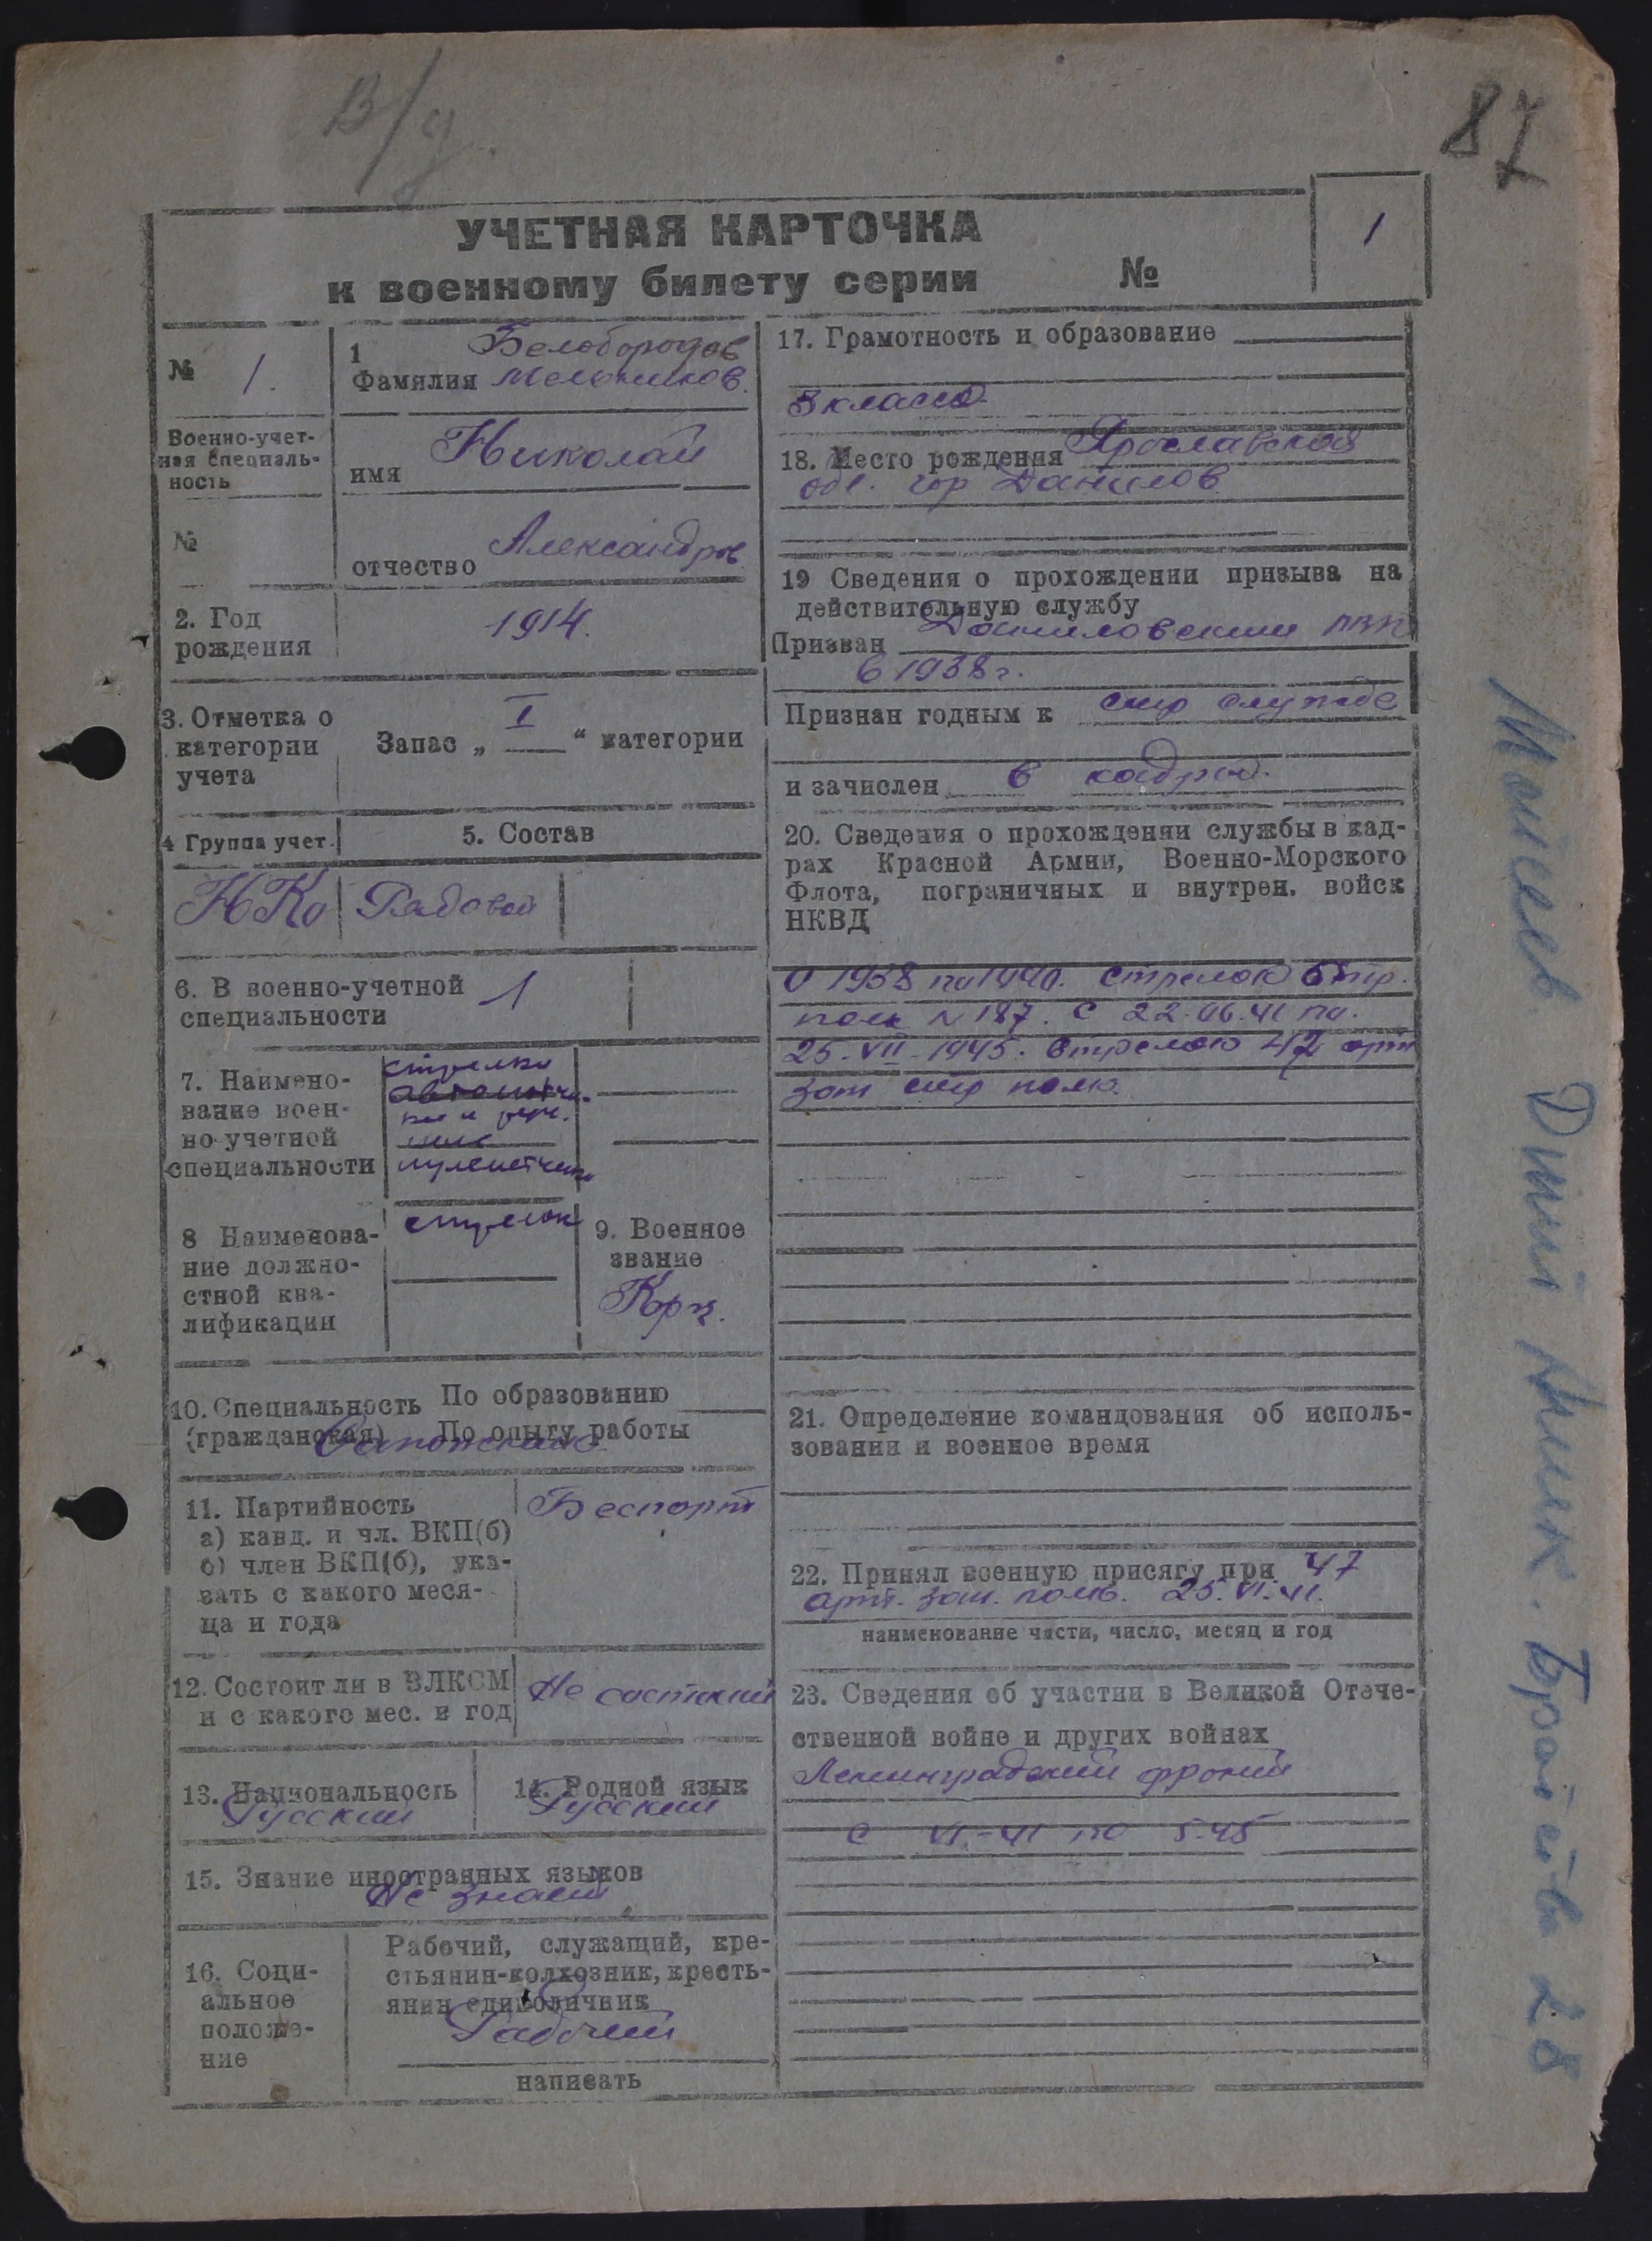 В/д.
87
УЧЕТНАЯ КАРТОЧКА
к военному билету серии №
1
№ 1.
1 Белобородов
Фамилия Мельников.
Военно-учет-
ная специаль-
ность
имя Николай
№
отчество Александров.
2. Год
рождения
1914.
3. Отметка о
категории
учета
Запас „ I “ категории
4 Группа учет.
5. Состав
НКО Рядовой
6. В военно-учетной
специальности
1
7. Наимено-
вание воен-
но-учетной
специальности
стрелки
пулеметчики
8 Наименова-
ние должно-
стной ква-
лификации
стрелок
9. Военное
звание
Кра.
10. Специальность По образованию
(гражданская) По опыту работы
Сапожник
11. Партийность
а) канд. и чл. ВКП(б)
б) член ВКП(б), ука-
зать с какого меся-
ца и года
Беспарт
12. Состоит ли в ВЛКСМ
и с какого мес. и год
Не состоит
13. Национальность
Русский
14. Родной язык
Русский
15. Знание иностранных языков
Не знает
16. Соци-
альное
положе-
ние
Рабочий, служащий, кре-
стьянин-колхозник, кресть-
янин единоличник
Рабочий
написать
17. Грамотность и образование
3 класса.
18. Место рождения Ярославской
обл. гор Данилов.
19 Сведения о прохождении призыва на
действительную службу
Призван Даниловским РВК
в 1938 г.
Признан годным к стр службе
и зачислен в кадры.
20. Сведения о прохождении службы в кад-
рах Красной Армии, Военно-Морского
Флота, пограничных и внутрен. войск
НКВД
С 1938 по 1940. стрелок стр.
полк N 187. С 22.06.41 по.
25.VII-1945. Стрелок 47 арт
зат стр полк.
21. Определение командования об исполь-
зовании и военное время
22. Принял военную присягу при 47
арт. зат. полк. 25.VI.41.
наименование части, число, месяц и год
23. Сведения об участии в Великой Отече-
ственной войне и других войнах
Ленинградский фронт
с VI-41 по 5-45
Братства 28